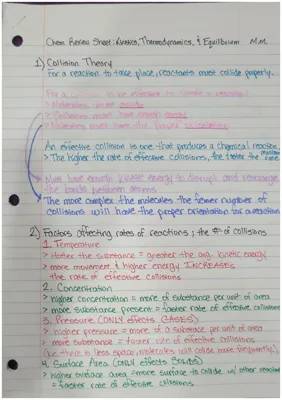 Chem Review Sheet: Kinetics, Thermodynamics, & Equilibrium M.M.
1) Collision Theory
For a reaction to take place, reactants must collide properly.
For a collision to be effective to create a reaction:
> Molecules must collide
> Collisions must have enough energy
> Molecules must have the proper orientation
An effective collision is one that produces a chemical reaction.
> The higher the rate of effective collisions, the faster the reaction rate
> Must have enough kinetic energy to disrupt and rearrange
the bonds between atoms
> The more complex the molecules the fewer number of
collisions will have the proper orientation for a reaction
2) Factors affecting rates of reactions; the # of collisions
1. Temperature
> Hotter the substance = greater the avg. kinetic energy
> more movement & higher energy INCREASES
the rate of effective collisions
2. Concentration
> higher concentration = more of substance per unit of area
> more substance present = faster rate of effective collisions
3. Pressure (ONLY effects GASES)
> higher pressure = more of a substance per unit of area
> more substance = faster rate of effective collisions
(i.e. there is less space, molecules will collide more frequently)
4. Surface Area (ONLY effects SOLIDS)
> higher surface area = more surface to collide w/ other
= faster rate of effective collisions